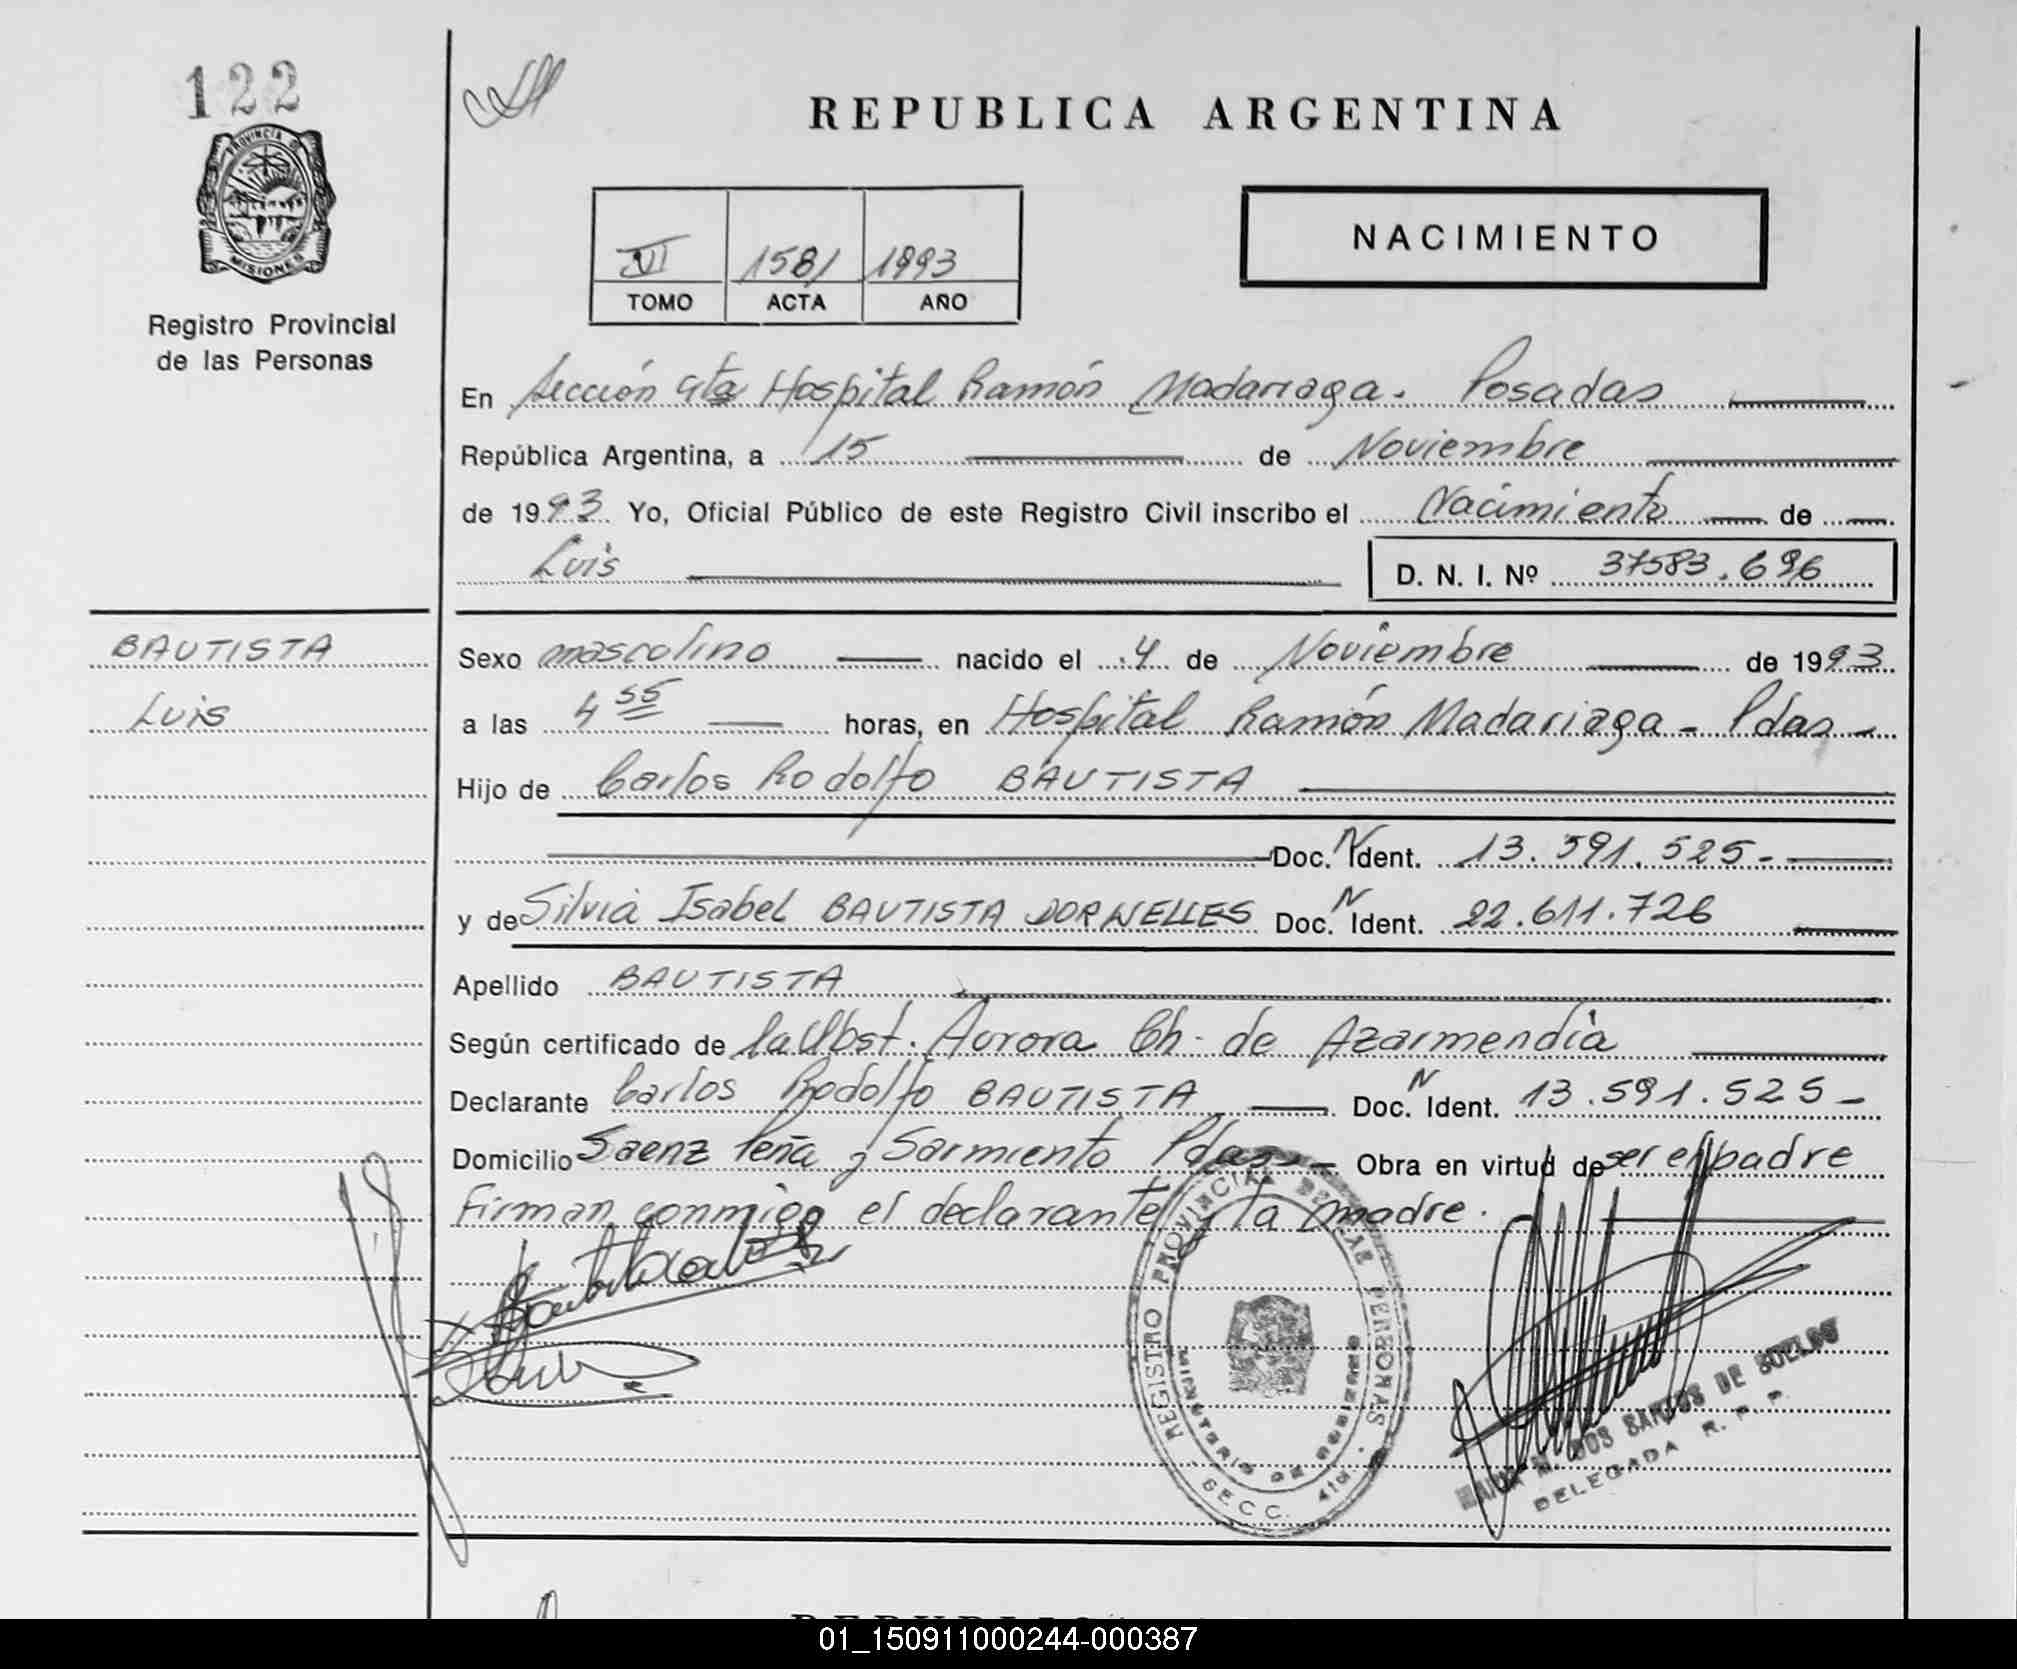 122
PROVINCIA DE
MISIONES
Registro Provincial
de las Personas
REPUBLICA ARGENTINA
NACIMIENTO
VI 1581 1993
TOMO ACTA AÑO
En Sección 4ta Hospital Ramón Madariaga. Posadas
República Argentina, a 15 de Noviembre
de 1993 Yo, Oficial Público de este Registro Civil inscribo el Nacimiento de
Luis D. N. I. Nº 37583.696
BAUTISTA
Luis
Sexo masculino nacido el 4 de Noviembre de 1993
a las 4 55 horas, en Hospital Ramón Madariaga - Pdas -
Hijo de Carlos Rodolfo BAUTISTA
Doc. N Ident. 13.591.525-
y de Silvia Isabel BAUTISTA DORNELLES Doc. N Ident. 22.611.726
Apellido BAUTISTA
Según certificado de la Obst. Aurora Ch. de Azarmendia
Declarante Carlos Rodolfo BAUTISTA Doc. N Ident. 13.591.525-
Domicilio Saenz Peña y Sarmiento Pdas - Obra en virtud de ser el padre
Firman conmigo el declarante y la madre.
REGISTRO PROVINCIAL DE LAS PERSONAS
MINISTERIO DE GOBIERNO
SECC. 4ta.
M. DOS SANTOS DE
DELEGADA R. P. P.
01_150911000244-000387